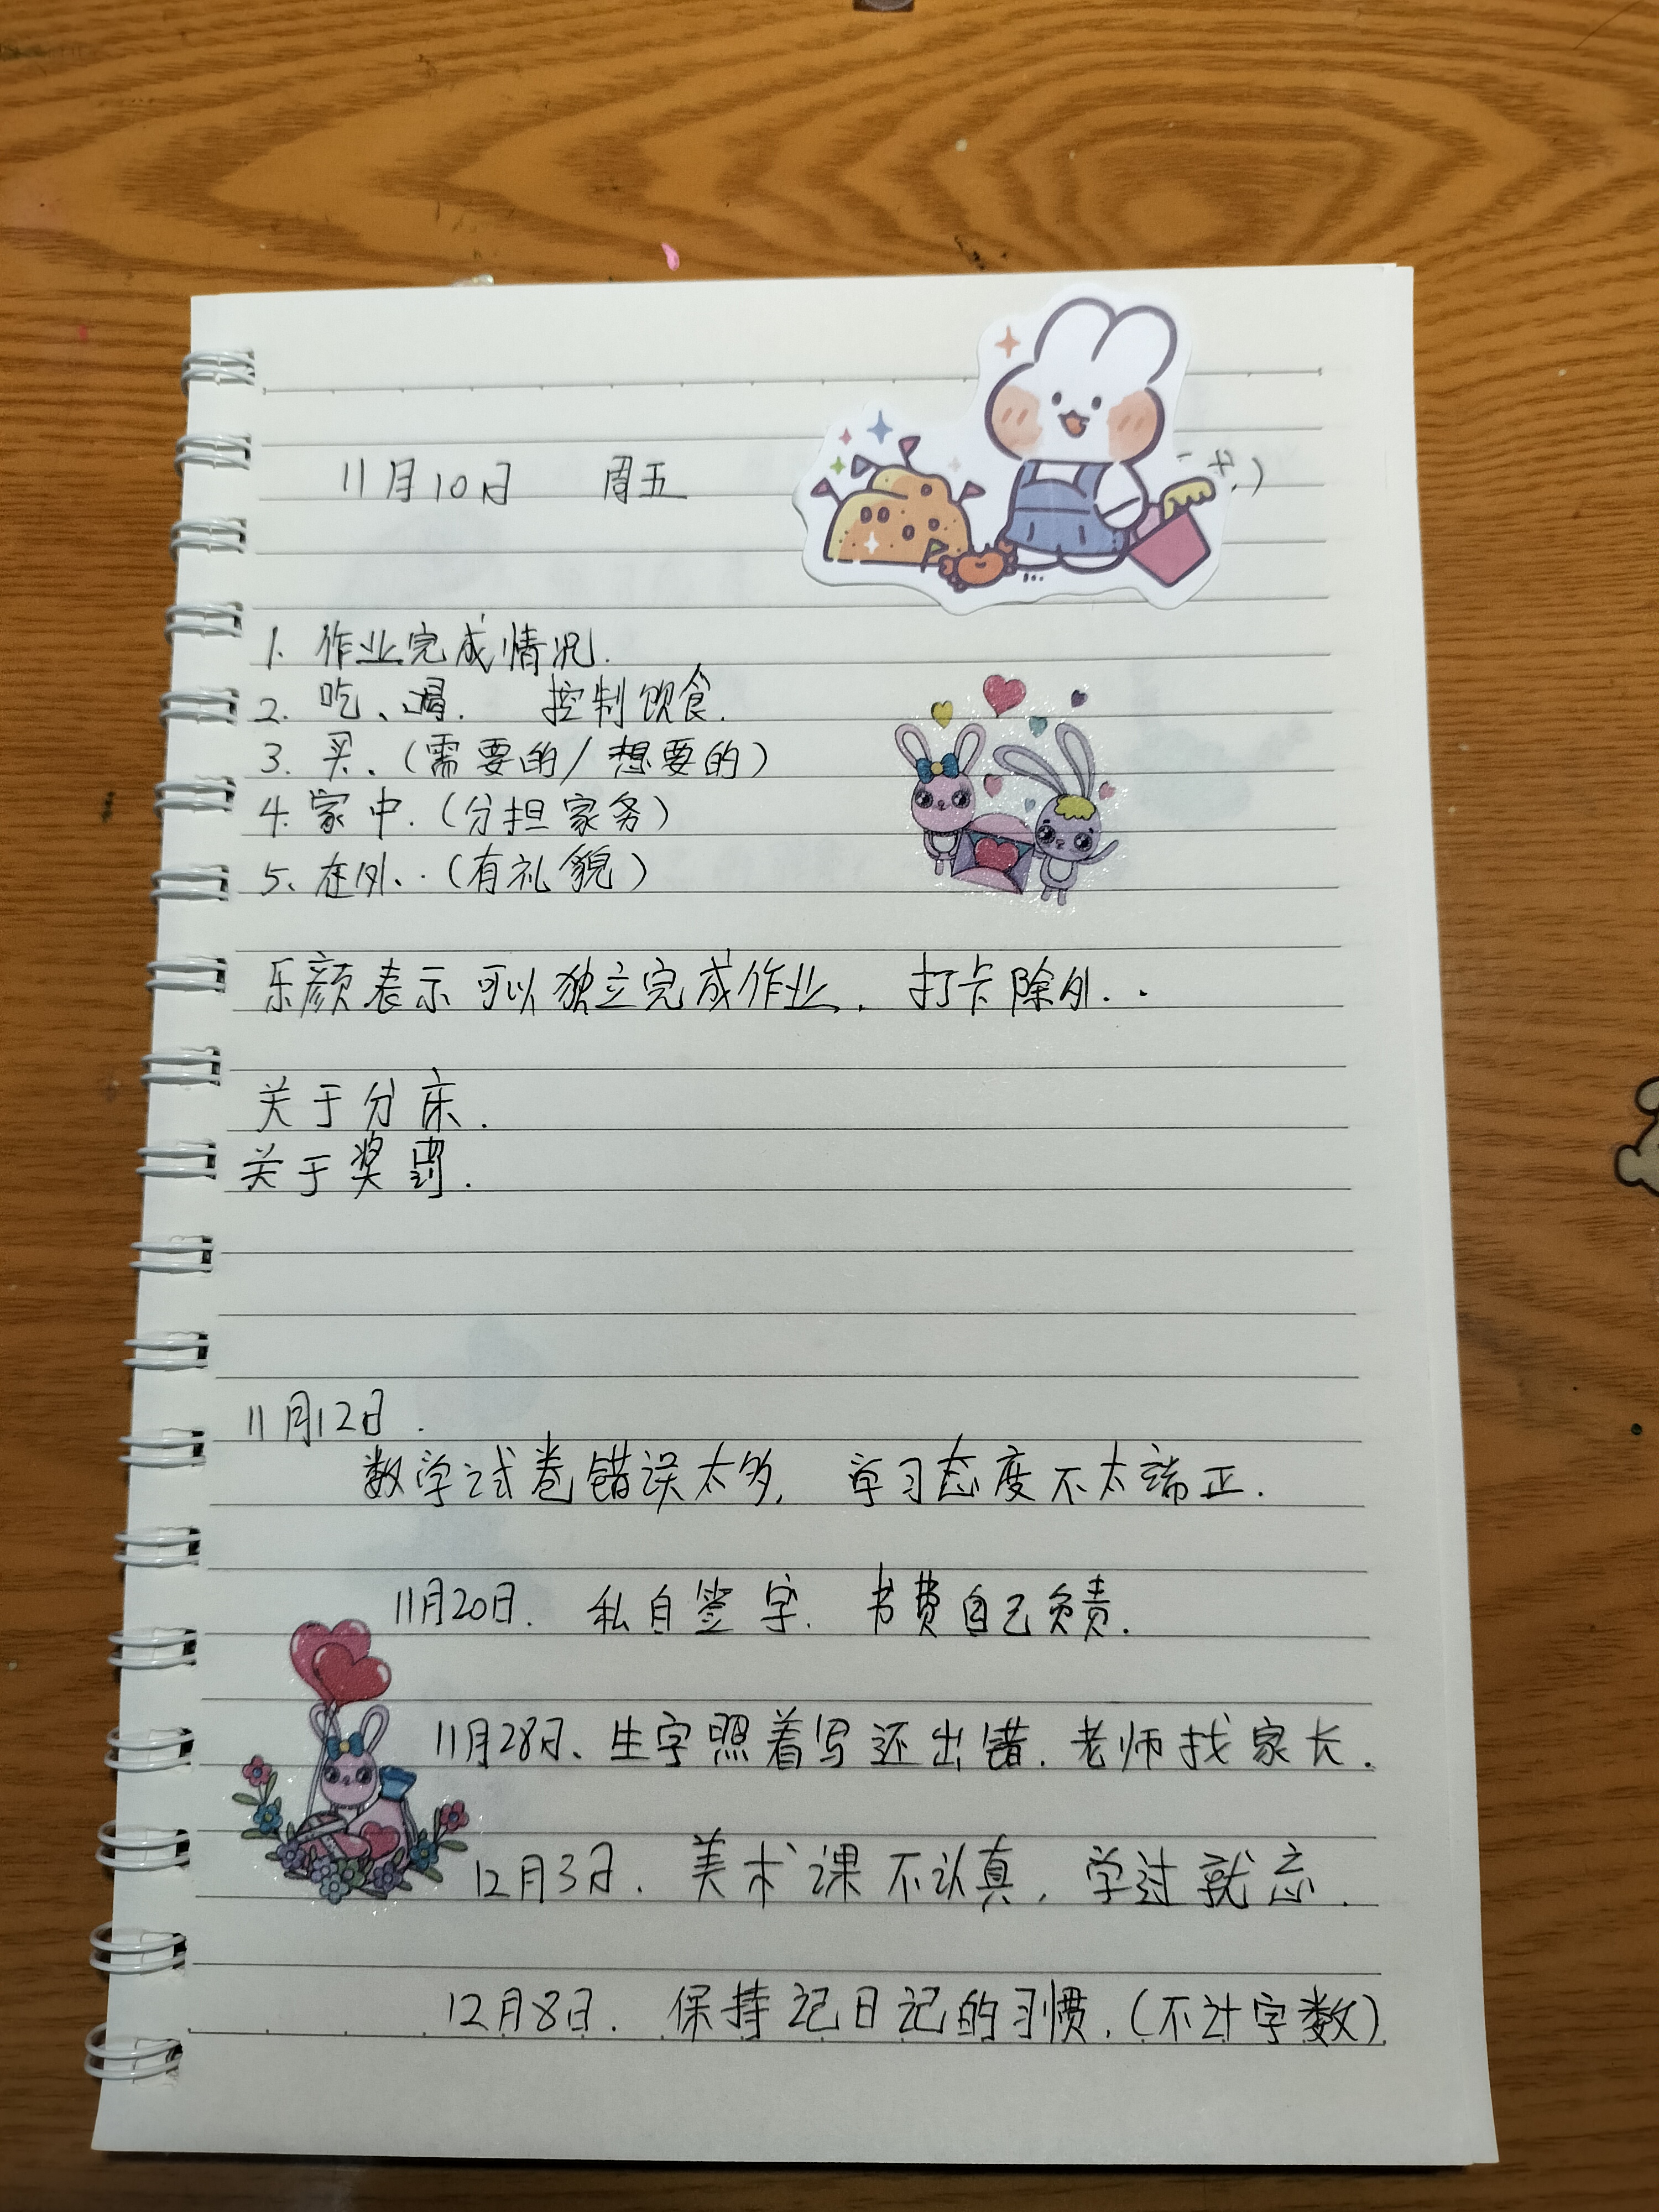 11月10日 周五
1. 作业完成情况.
2. 吃、喝. 控制饮食.
3. 买.(需要的/想要的)
4. 家中.(分担家务)
5、在外..(有礼貌)
乐颜表示可以独立完成作业.. 打卡除外..
关于分床.
关于奖罚.
11月12日.
数学试卷错误太多, 学习态度不太端正.
11月20日. 私自签字. 书费自己负责.
11月28日、生字照着写还出错. 老师找家长.
12月3日. 美术课不认真, 学过就忘.
12月8日. 保持记日记的习惯.(不计字数)